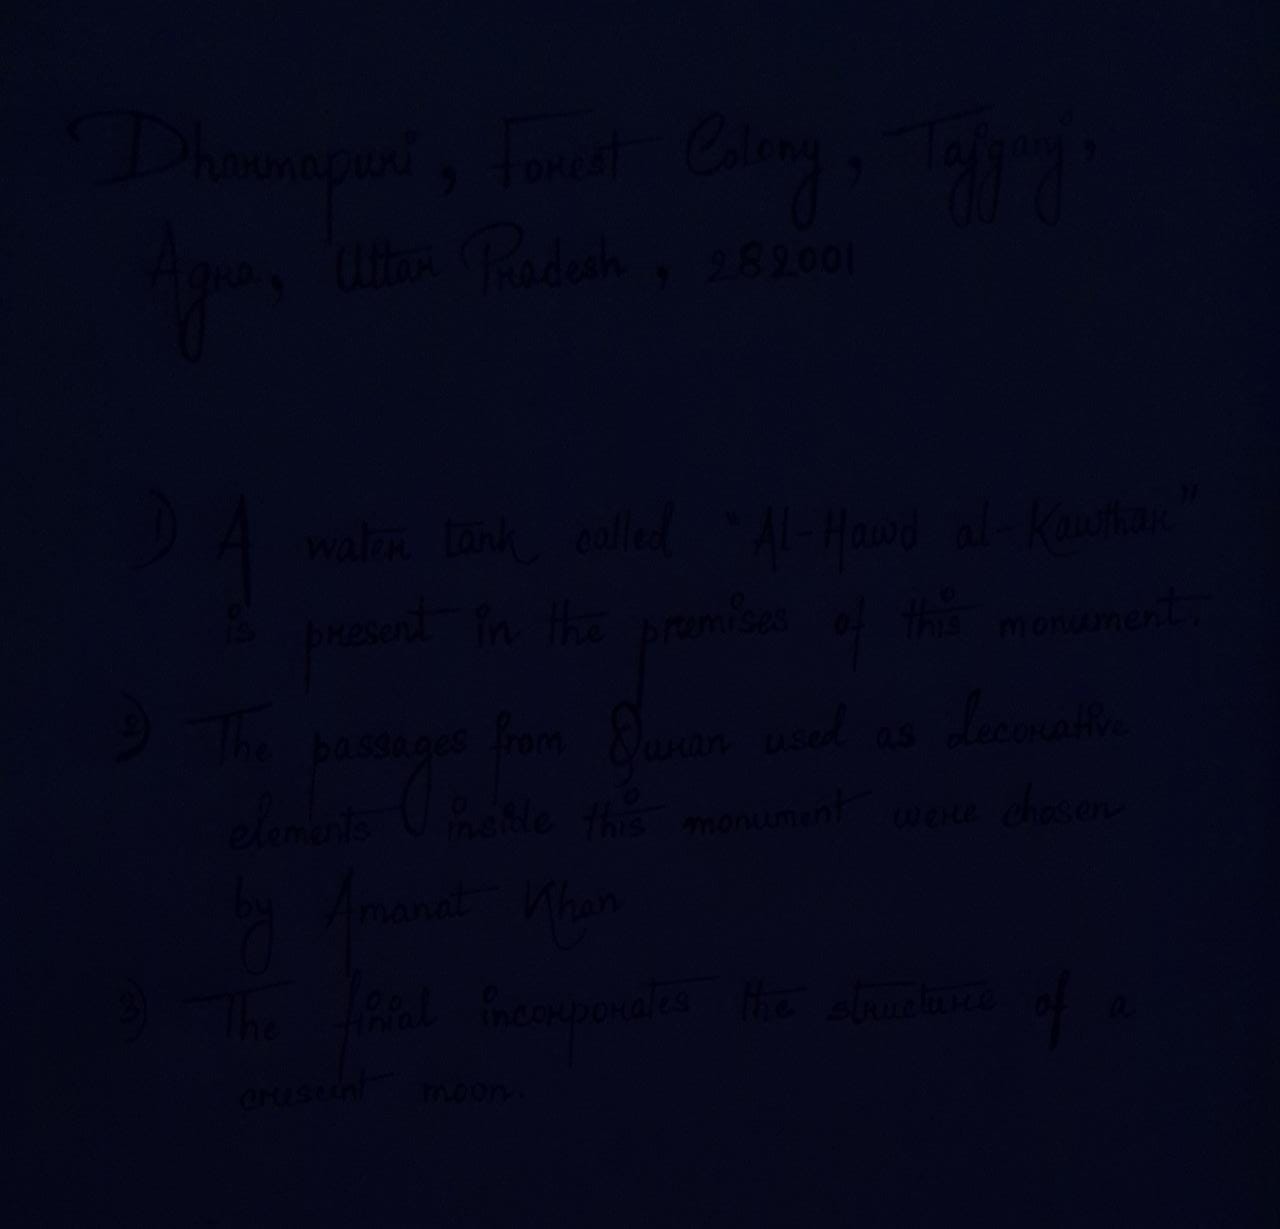 Dharmapuri, Forest Colony, Tajganj,
Agra, Uttar Pradesh, 282001
1) A water tank called "Al-Hawd al-Kawthar"
is present in the premises of this monument.
2) The passages from Quran used as decorative
elements inside this monument were chosen
by Amanat Khan
3) The finial incorporates the structure of a
cresent moon.